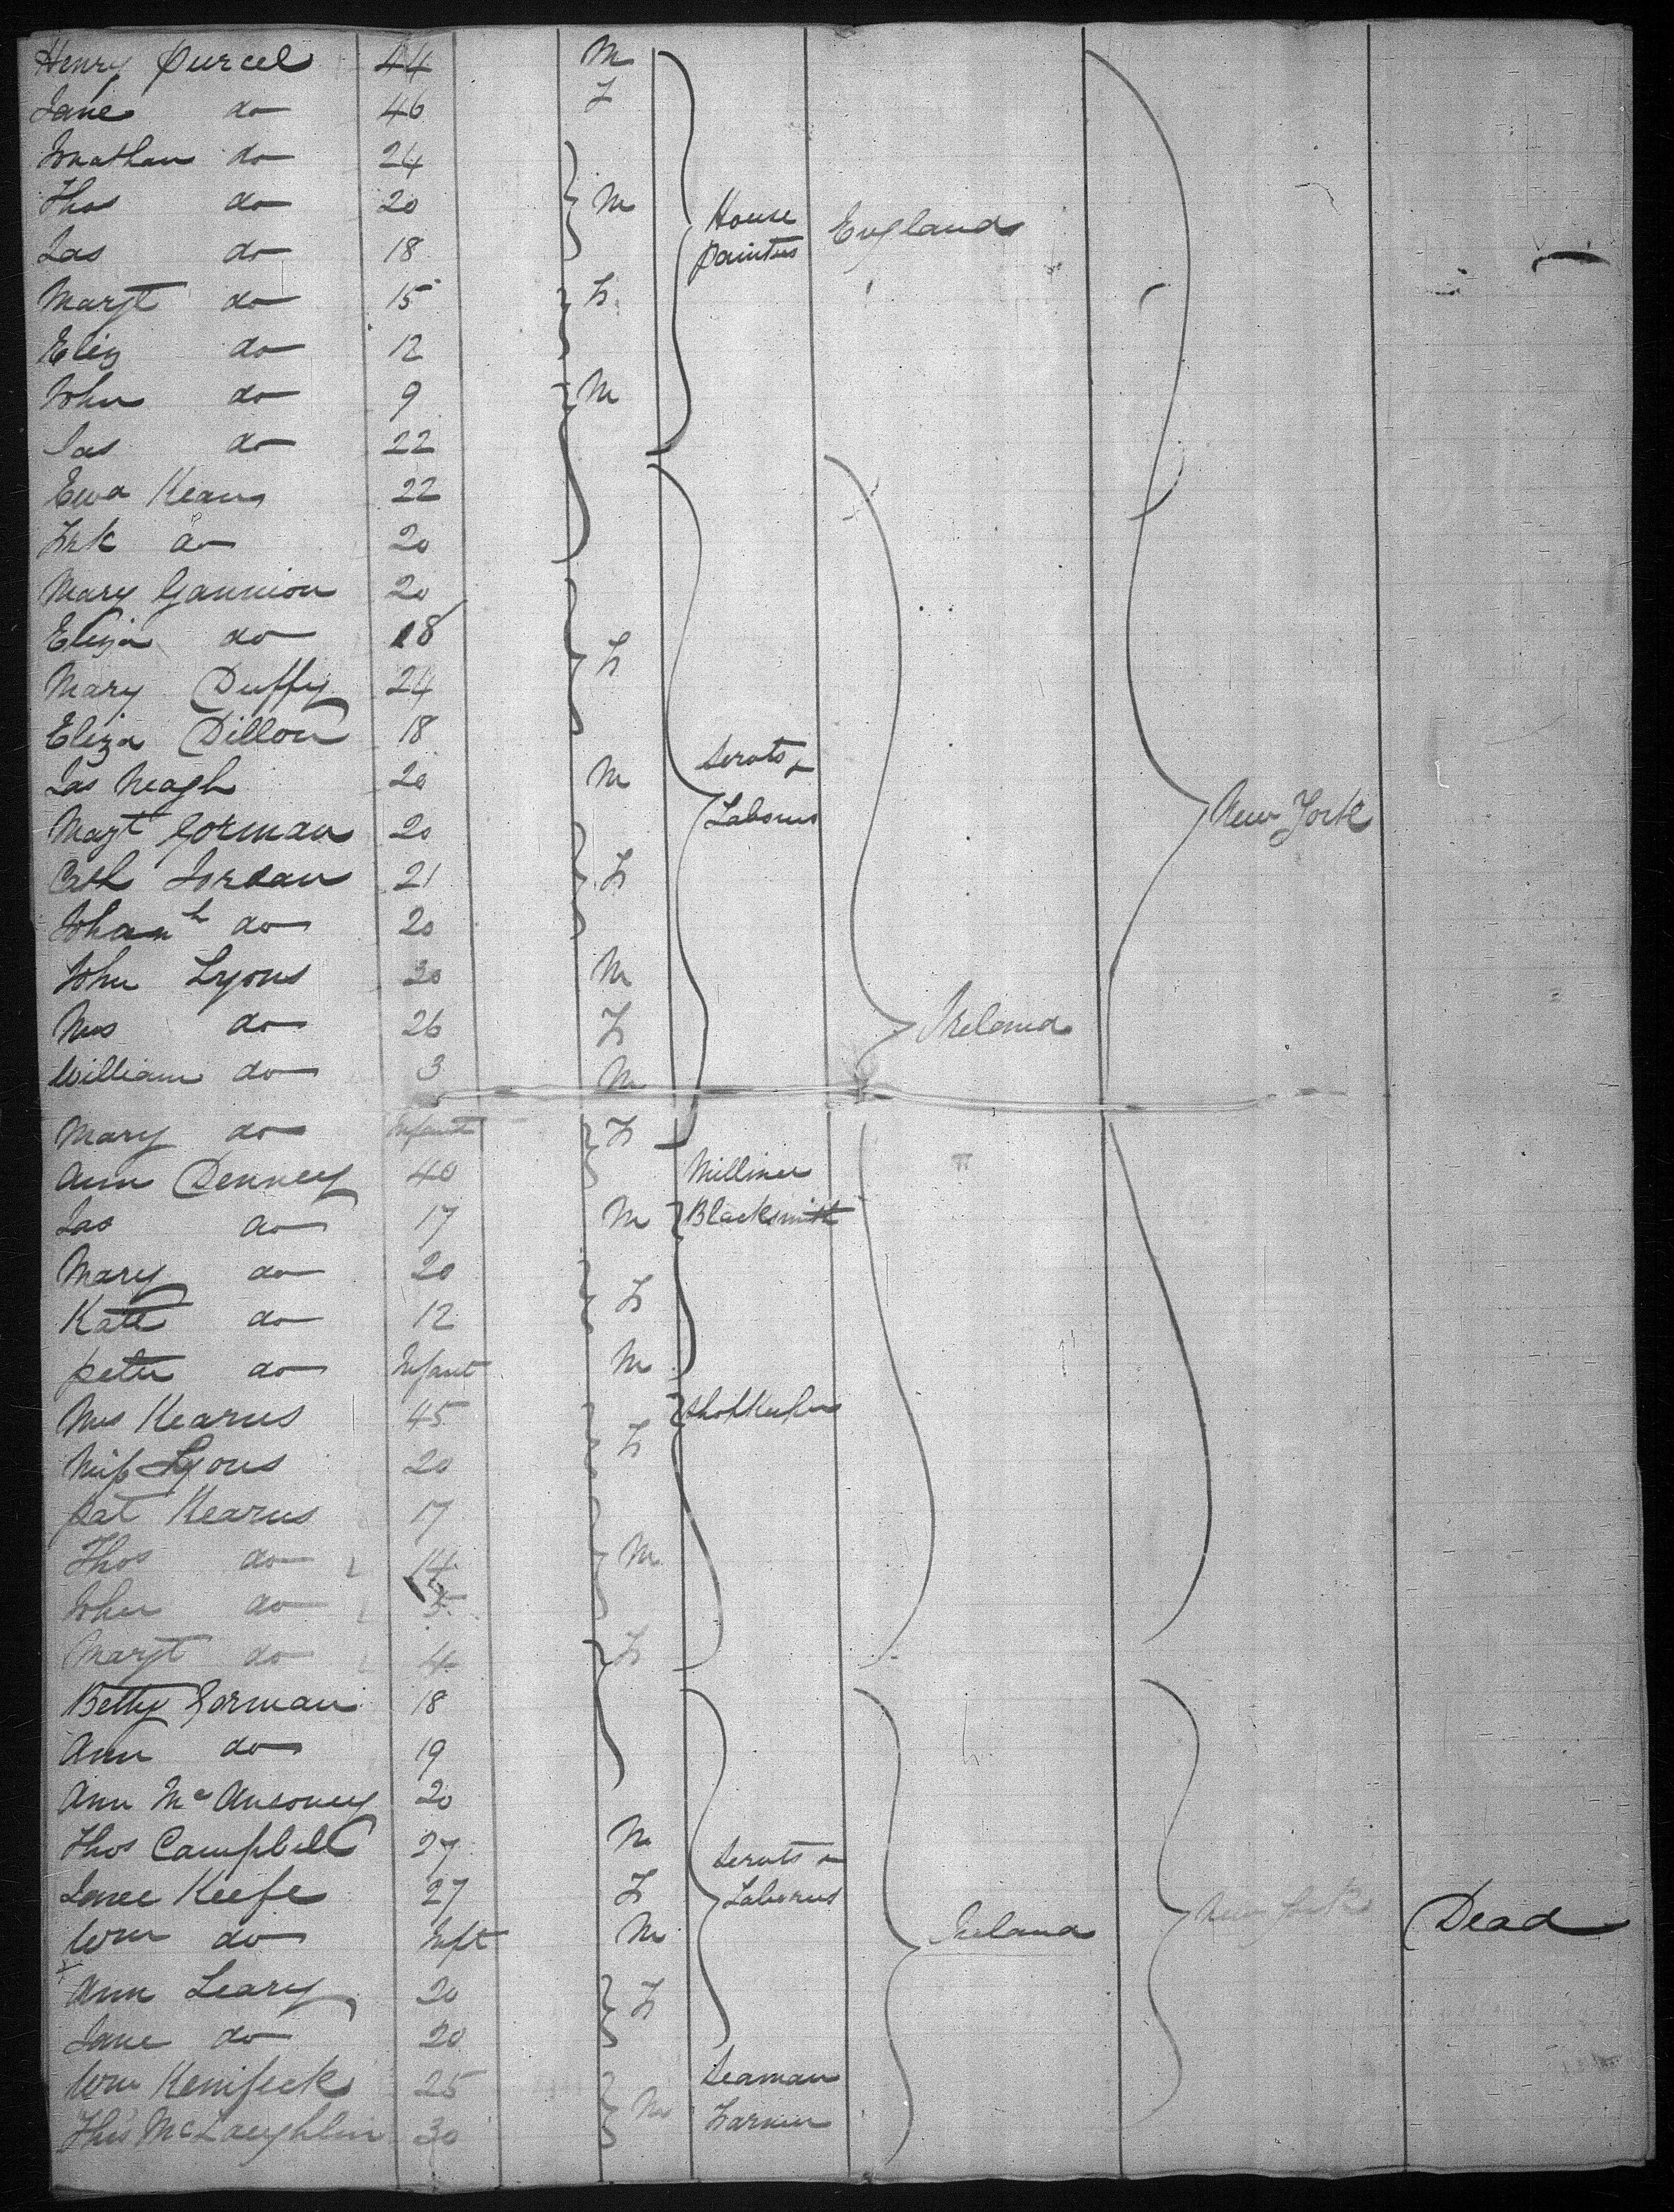 Henry Purcel 44 M
Jane do 46 F
Jonathan do 24
Thos do 20 M House
Jas do 18 painters England
Margt do 15 F
Eliz do 12
John do 9 M
Jas do 22
Kean 22
do 20
Mary Gannion 20
Eliza do 18 F
Mary Duffy 24
Eliza Dillon 18
Jas Neagh 20 M Servts &
Margt Gorman 20 Laborers New York
Cath Jordan 21 F
Johanh do 20
John Lyons 30 M
Mrs do 26 F Ireland
William do 3 M
Mary do Infant F
Ann Denney 40 Milliner
Jas do 17 M Blacksmith
Mary do 20 F
Kate do 12
peter do Infant M
Mrs Kearns 45 Shopkeeper
Miss Lyons 20 F
Pat Kearns 17
Thos do 14 M
John do 5
Margt do 4 F
Betty Gorman 18
Ann do 19
Ann Mc 20
Thos Campbell 27 M Servts &
Jane Keefe 27 F Laborers
Wm do Inft M Ireland New York Dead
x Ann Leary 20 F
Jane do 20
Wm 25 Seaman
Thos McLaughlin 30 M Farmer